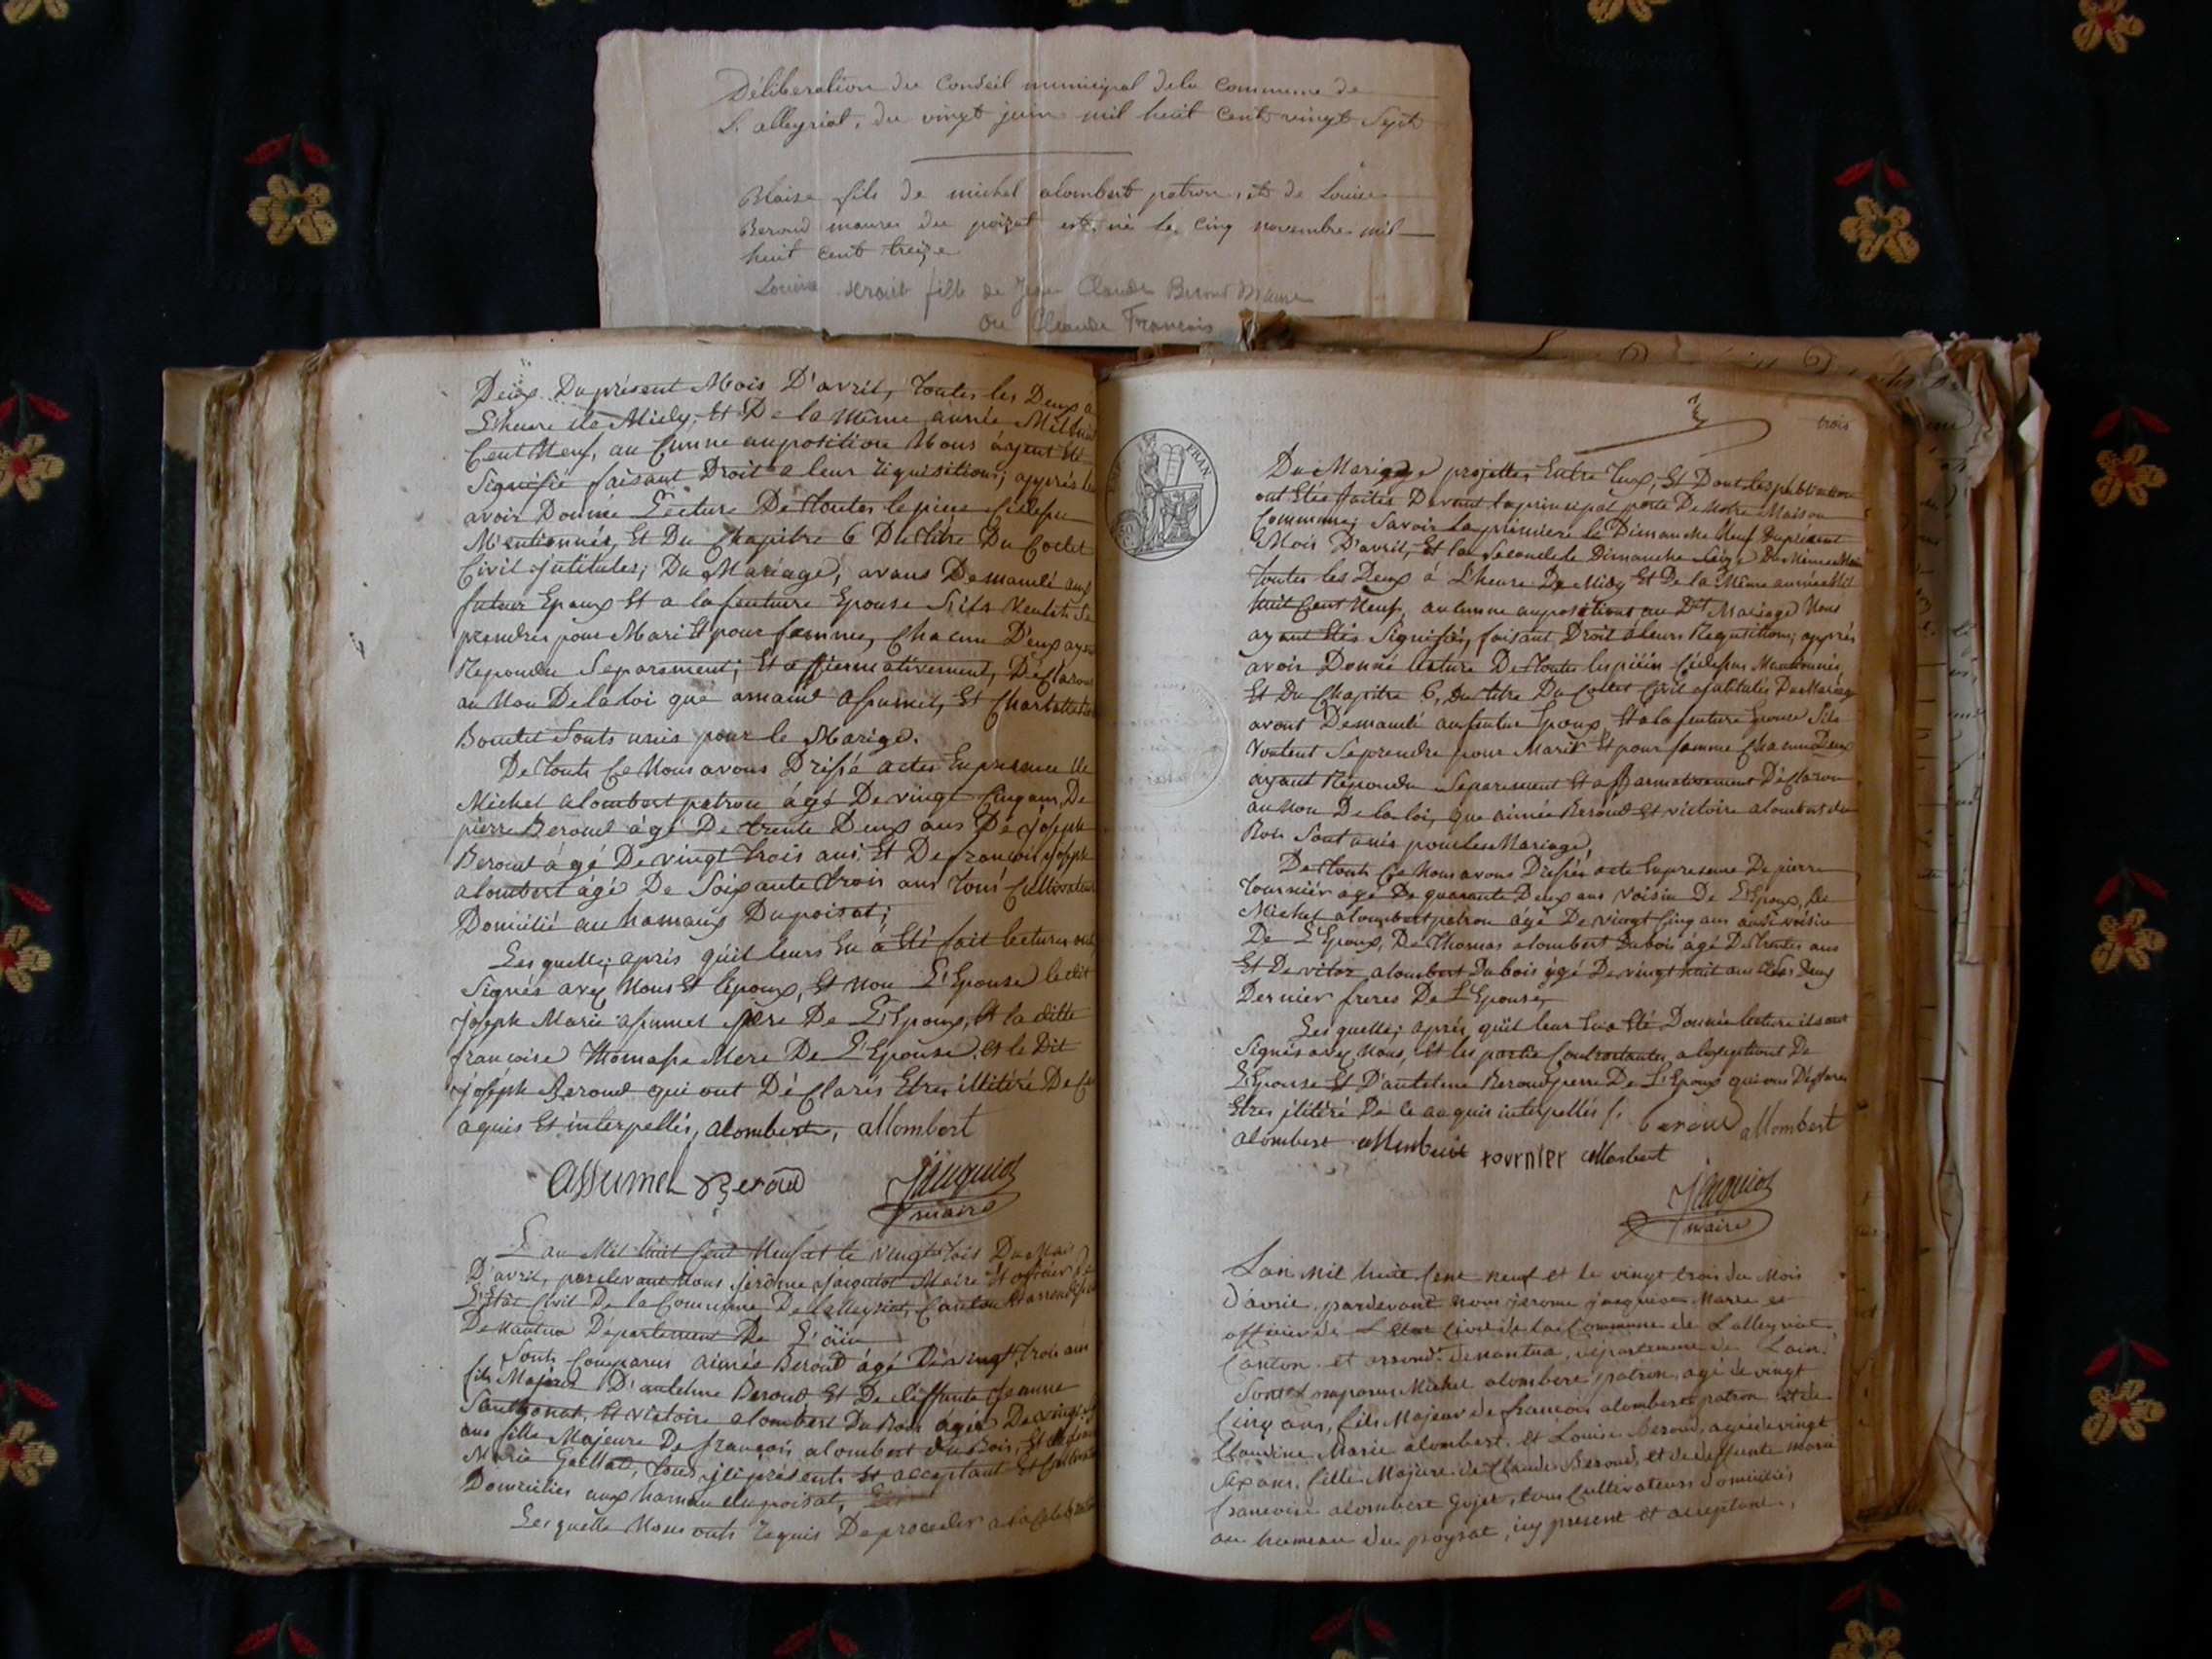 Déliberation du Conseil municipal dela commune de
L. alleyriat, du vingt juin mil huit cent vingt Sept
Blaise fils de michel alombert patron, et de Louise
Beroud maure du poizat est né le cinq novembre mil
huit cent treize
Louise serait fille de Jean Claude Beroud Maure
ou Claude François
Deux Du présent Mois D'avril, toutes les Deux a
L'heure de Midy, Et De la Même année Mil huit
Cent Neuf, au Cunne auposition Nous áyant Eté
Signifié faisant Droit a leur Requisitions; apprés
avoir Donné Lecture De toutes le piece
Mentionnés, Et Du Chapitre 6 Du titre Du Codet
Civil jntitules; Du Mariage, avons Demandé aux
futeur Epoux Et a la feuture Epouse S'ils veulet Se
prendres pour Mari Et pour femme, Chacune D'eux
Repondu Separement; Et affiermativement, Déclarons
au Non De la loi que amand assumel, Et
Boulet Sonts unis pour le Marige.
De touts Ce Nous avons Drissé actes En presence de
Michel alombert patron ágé De vingt Cinq ans, De
pierre Beroud ágé De trente Deux ans De joseph
Beroud ágé De vingt trois ans Et De francois joseph
alombert ágé De Soixante trois ans tous
Domicilié au hamaux Dupoisat;
Les quelle; après qúil leurs En á Eté fait lectures
Signés avex Nous Et l'époux, Et Non L'Epouse le dit
joseph Marie assumel père De L'Epoux, Et la ditte
francoise Thomasse Mere De L'Epouse, et le Dit
joséph Beroud qui ont Déclarés Etres illitéré De
aquis Et interpellés, alombert, allombert
assumel Beroud Jacquiot
maire
L'an Mil huit Cent Neuf et le vingt trois Du Mois
D'avril, pardevant Nous jérôme jacquiot Maire Et officier
L'Etat Civil De la Commune De Lalleyriat, Canton
De Nantua Département De L'ain
Sonts Comparus aimée Beroud ágé De vingt trois ans
fils Majeur D'antelme Beroud Et De deffunte Jeanne
Et victoire alombert Du Bois agée De vingt
ans fille Majeure De françois alombert du Bois, Et
Marie tous ji présents Et acceptant
Domicilies aux hamau du poisat,
Les quelle Nous onts Requis De proceder a la
trois
FRAN
Du Mariage projetter Entre Eux, Et Dont les
ont Etés faites Devant laprincipal porte De Notre Maison
Commune; Savoir la premiere le Dimanche Neuf Du présent
Mois D'avril, Et la Seconde le Dimanche Seize Du Même Mois
toutes les Deux á L'heure De Midy Et De la Même année Mil
huit Cent Neuf, au Cunne auposition au Dt Mariage Nous
ayant Etés Signifiés, faisant Droit á leurs Requsitions; apprés
avoir Donné lecture De toutes Mentionnés,
Et Du Chapitre 6, Du titre Du Codet Civil jntitulés Du Mariage
avont Demandé au futur Epoux, Et a la feuture Epouse Sils
veulent Seprendre pour Marit Et pour femme Chacune Deux
áyant Repondu Separement Et affiarmativement Déclarons
au Non De la loi, que aimée Beroud Et victoire alombert du
Bois Sont unis pour les Mariage,
De touts Ce Nous avons Dressés acte En presense De pierre
tourniér ágé De quarante Deux ans voisin De L'Epoux, De
Michel alombert patron ágé De vingt Cinq ans aussi voisin
De L'Epoux, De thomas alombert Dubois ágé De trentes ans
Et De alombert Dubois ágé De vingt huit ans Les Deux
Dernier freres De L'Epouse,
Les quelle; après qúil leur En a Eté Donnée lecture
Signés avex Nous, Et les partie Contractantes, a De
L'Epouse Et D'antelme Beroud perre De L'Epoux Déclarer
Etres jlitéré De ce anquis interpellés. beroud allombert
alombert tournier allombert
Jacquiot
maire
Lan mil huit Cent neuf et le vingt trois du Mois
D'avril, pardevant nous jerome jacquiot Maire et
officier de L'Etat Civil de la Commune de Lalleyriat,
Canton et arrond.t de nantua, département de Lain.
Sont Comparus Michel alombert patron, agé de vingt
Cinq ans, fils Majeur de francois alombert patron et de
Claudine Marie alombert, et Louise Beroud, agée de vingt
six ans, fille Majeure de Claude Beroud, et de deffunte Marie
francoise alombert Gojet, tous Cultivateurs domiciliés
au hameau du poysat, icy present et acceptant,